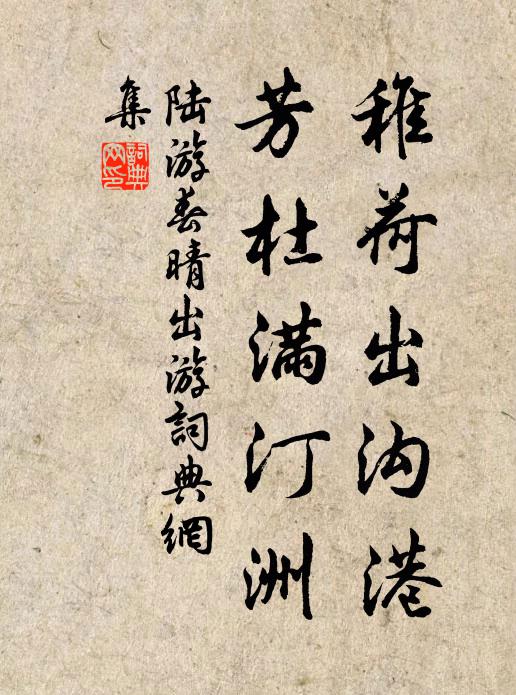 稚荷出沟港
芳杜满汀洲
陆游春晴出游詞典網
集
詞典网印